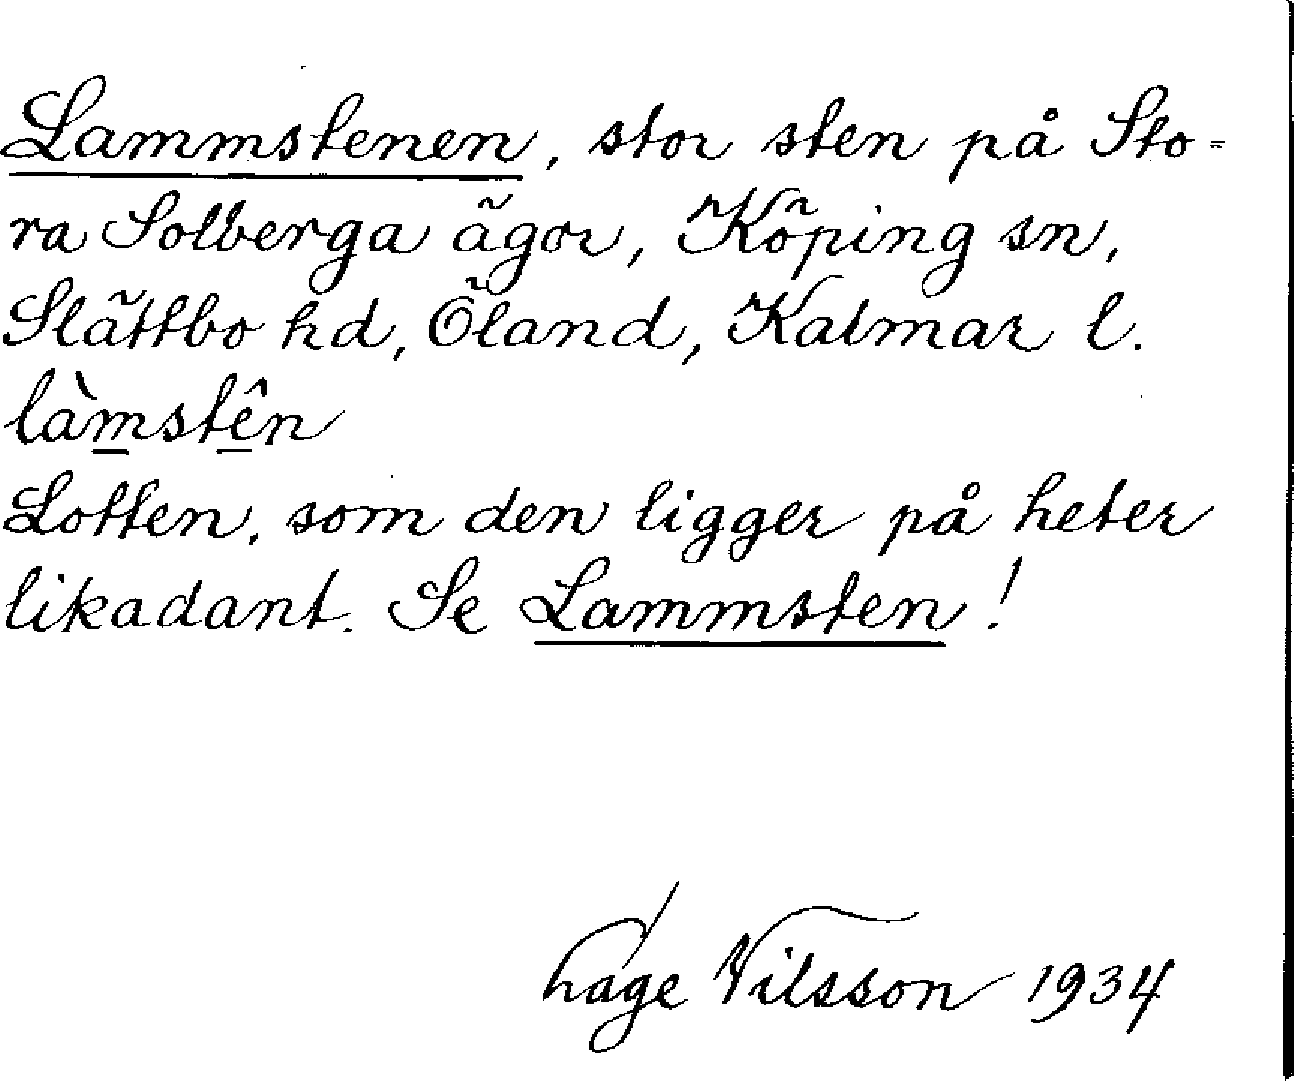 Lammstenen, stor sten på Sto-
ra Solberga ägor, Köping sn,
Slättbo hd, Öland, Kalmar l.
làmstên
Lotten, som den ligger på heter
likadant. Se Lammsten!
Åage Nilsson 1934